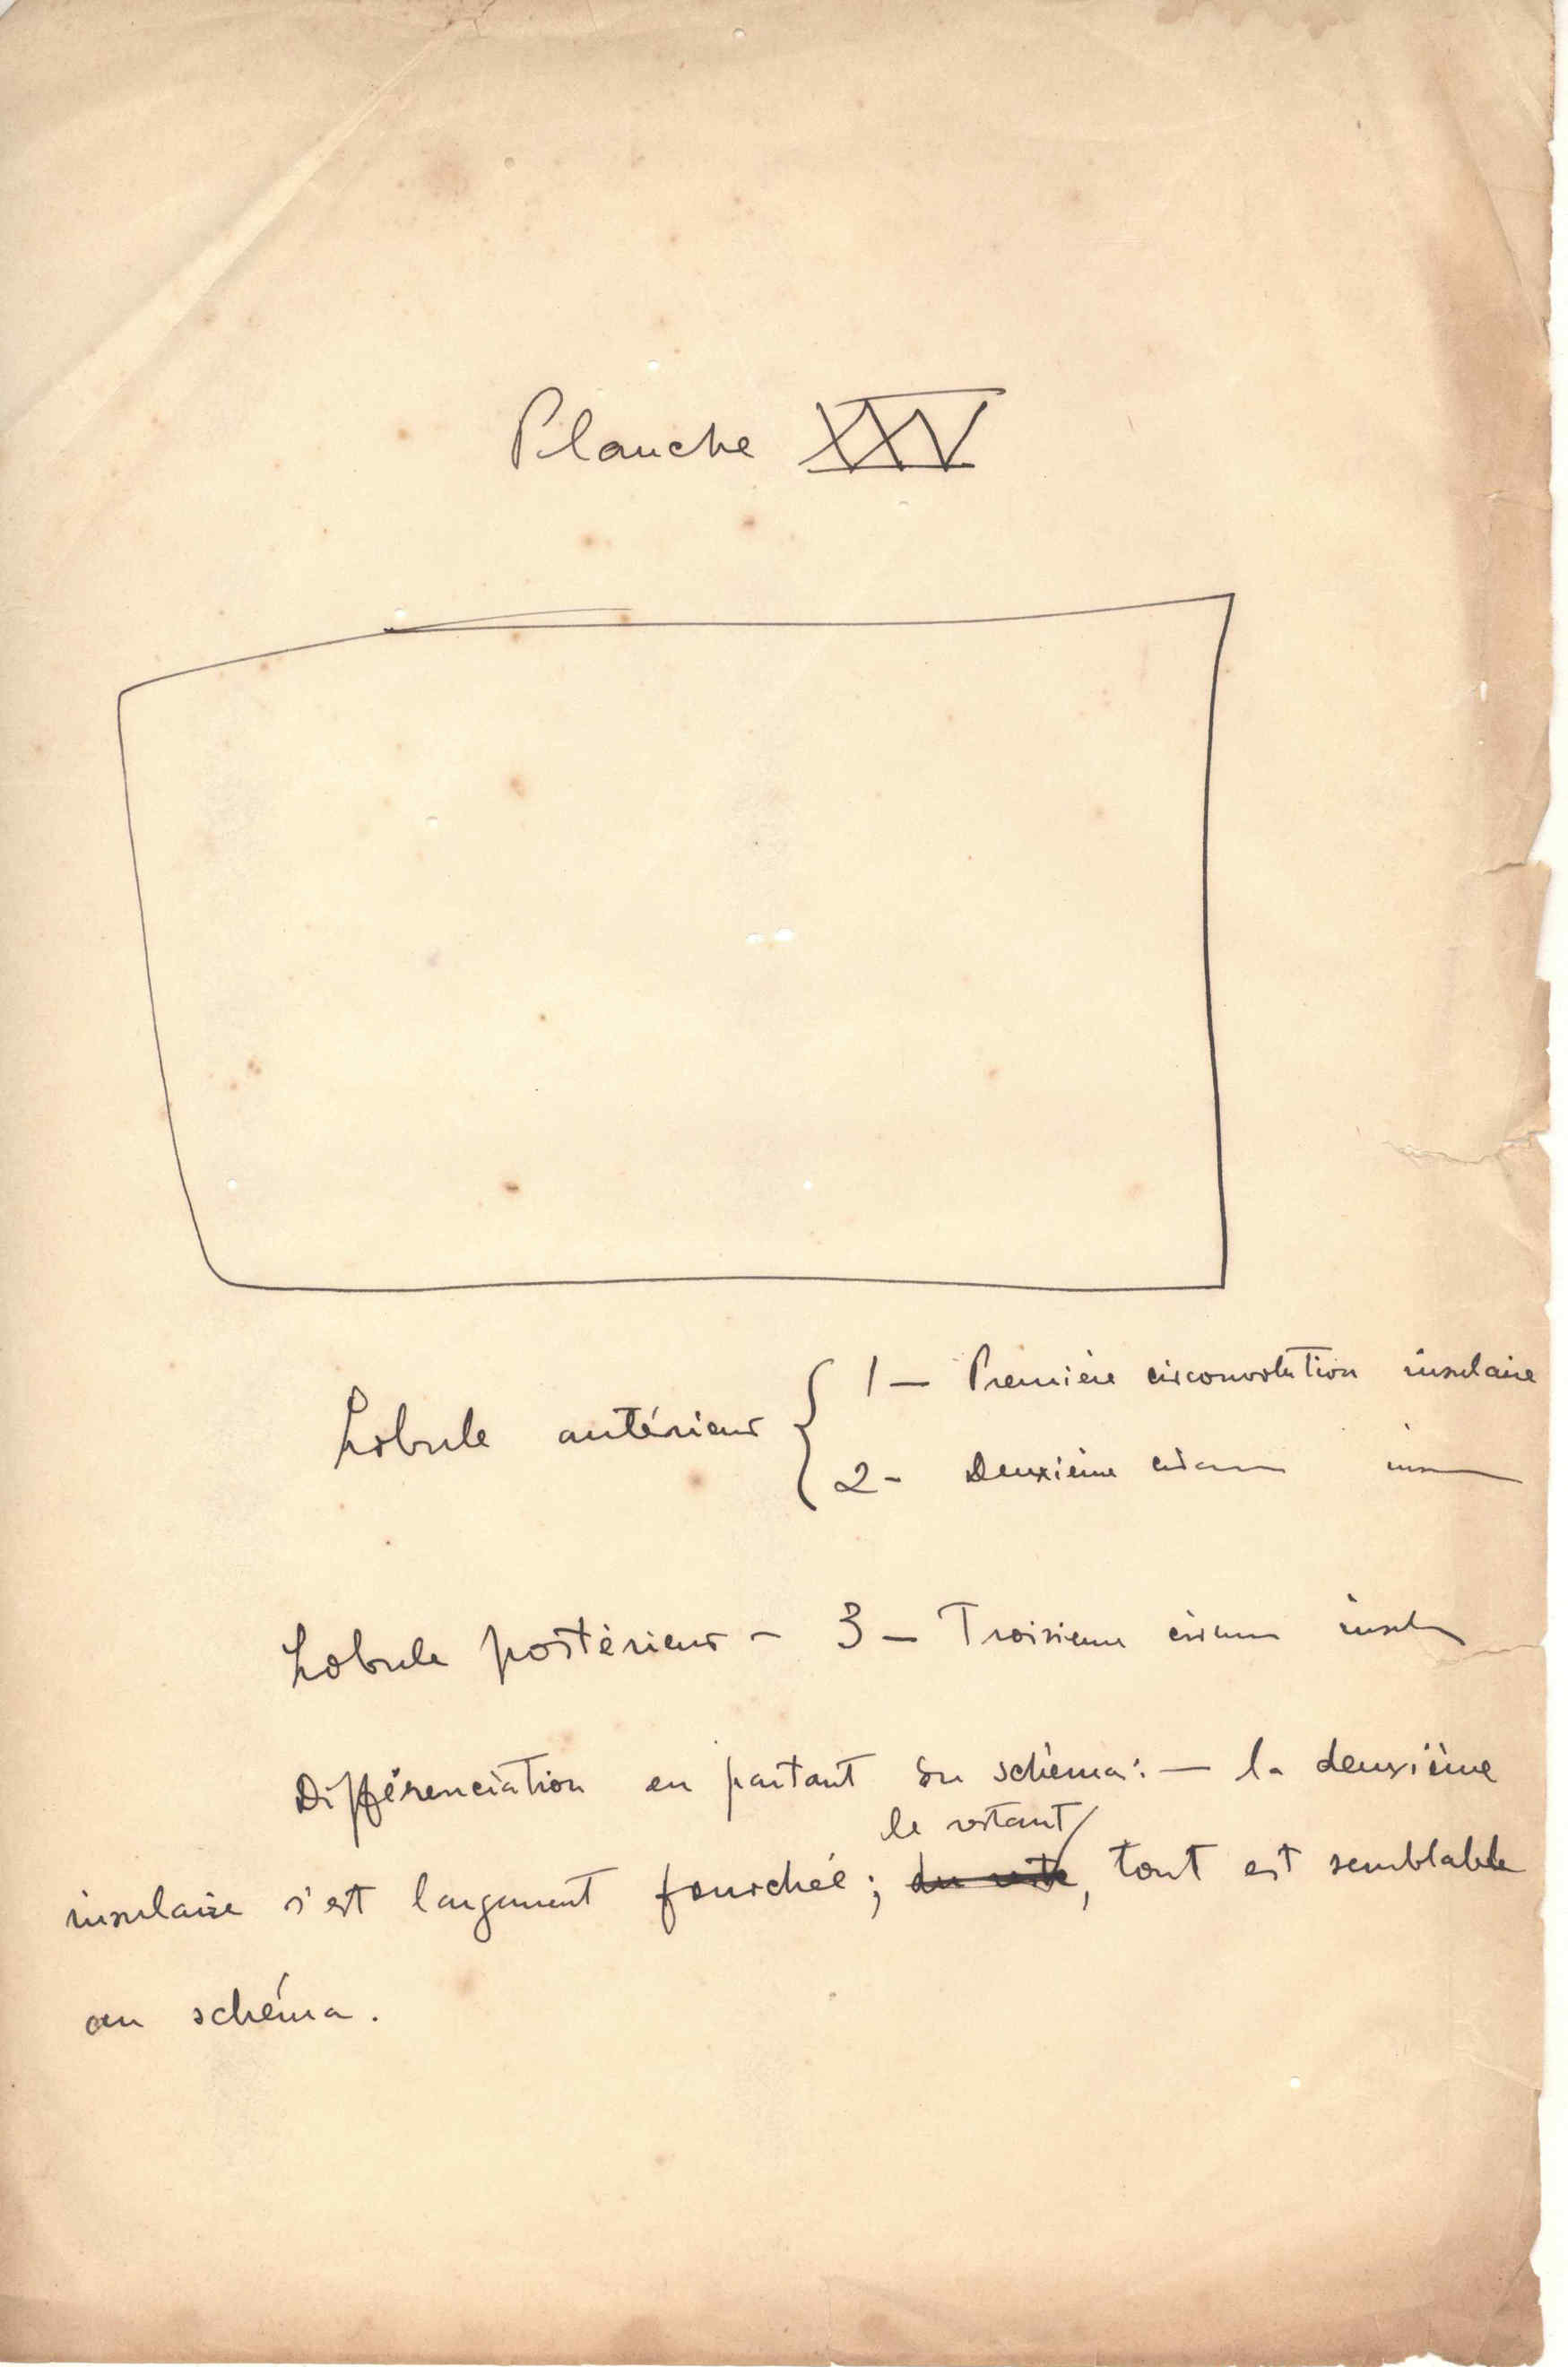 Planche XXV
Lobule antérieur { 1 — Première circonvolution insulaire
2 - Deuxième circon ins
Lobule postérieur - 3 — Troisième circon insul
Différenciation en partant du schéma : — la deuxième
le restant
insulaire s'est largement fourchée ; du reste, tout est semblable
au schéma.